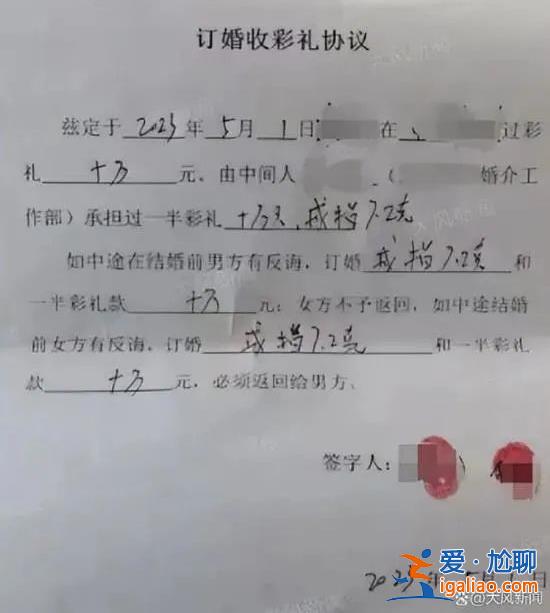 订婚收彩礼协议
兹定于 2023 年 5 月 1 日 在 过彩
礼 十万 元、由中间人 ( 婚介工
作部）承担过一半彩礼 十万元，戒指7.2克
如中途在结婚前男方有反诲，订婚 戒指7.2克 和
一半彩礼款 十万 元；女方不予返回，如中途结婚
前女方有反诲，订婚 戒指7.2克 和一半彩礼
款 十万 元，必须返回给男方、
签字人：
2023年5月1日
爱·尬聊
igaliao.com
@大风新闻
大风新闻